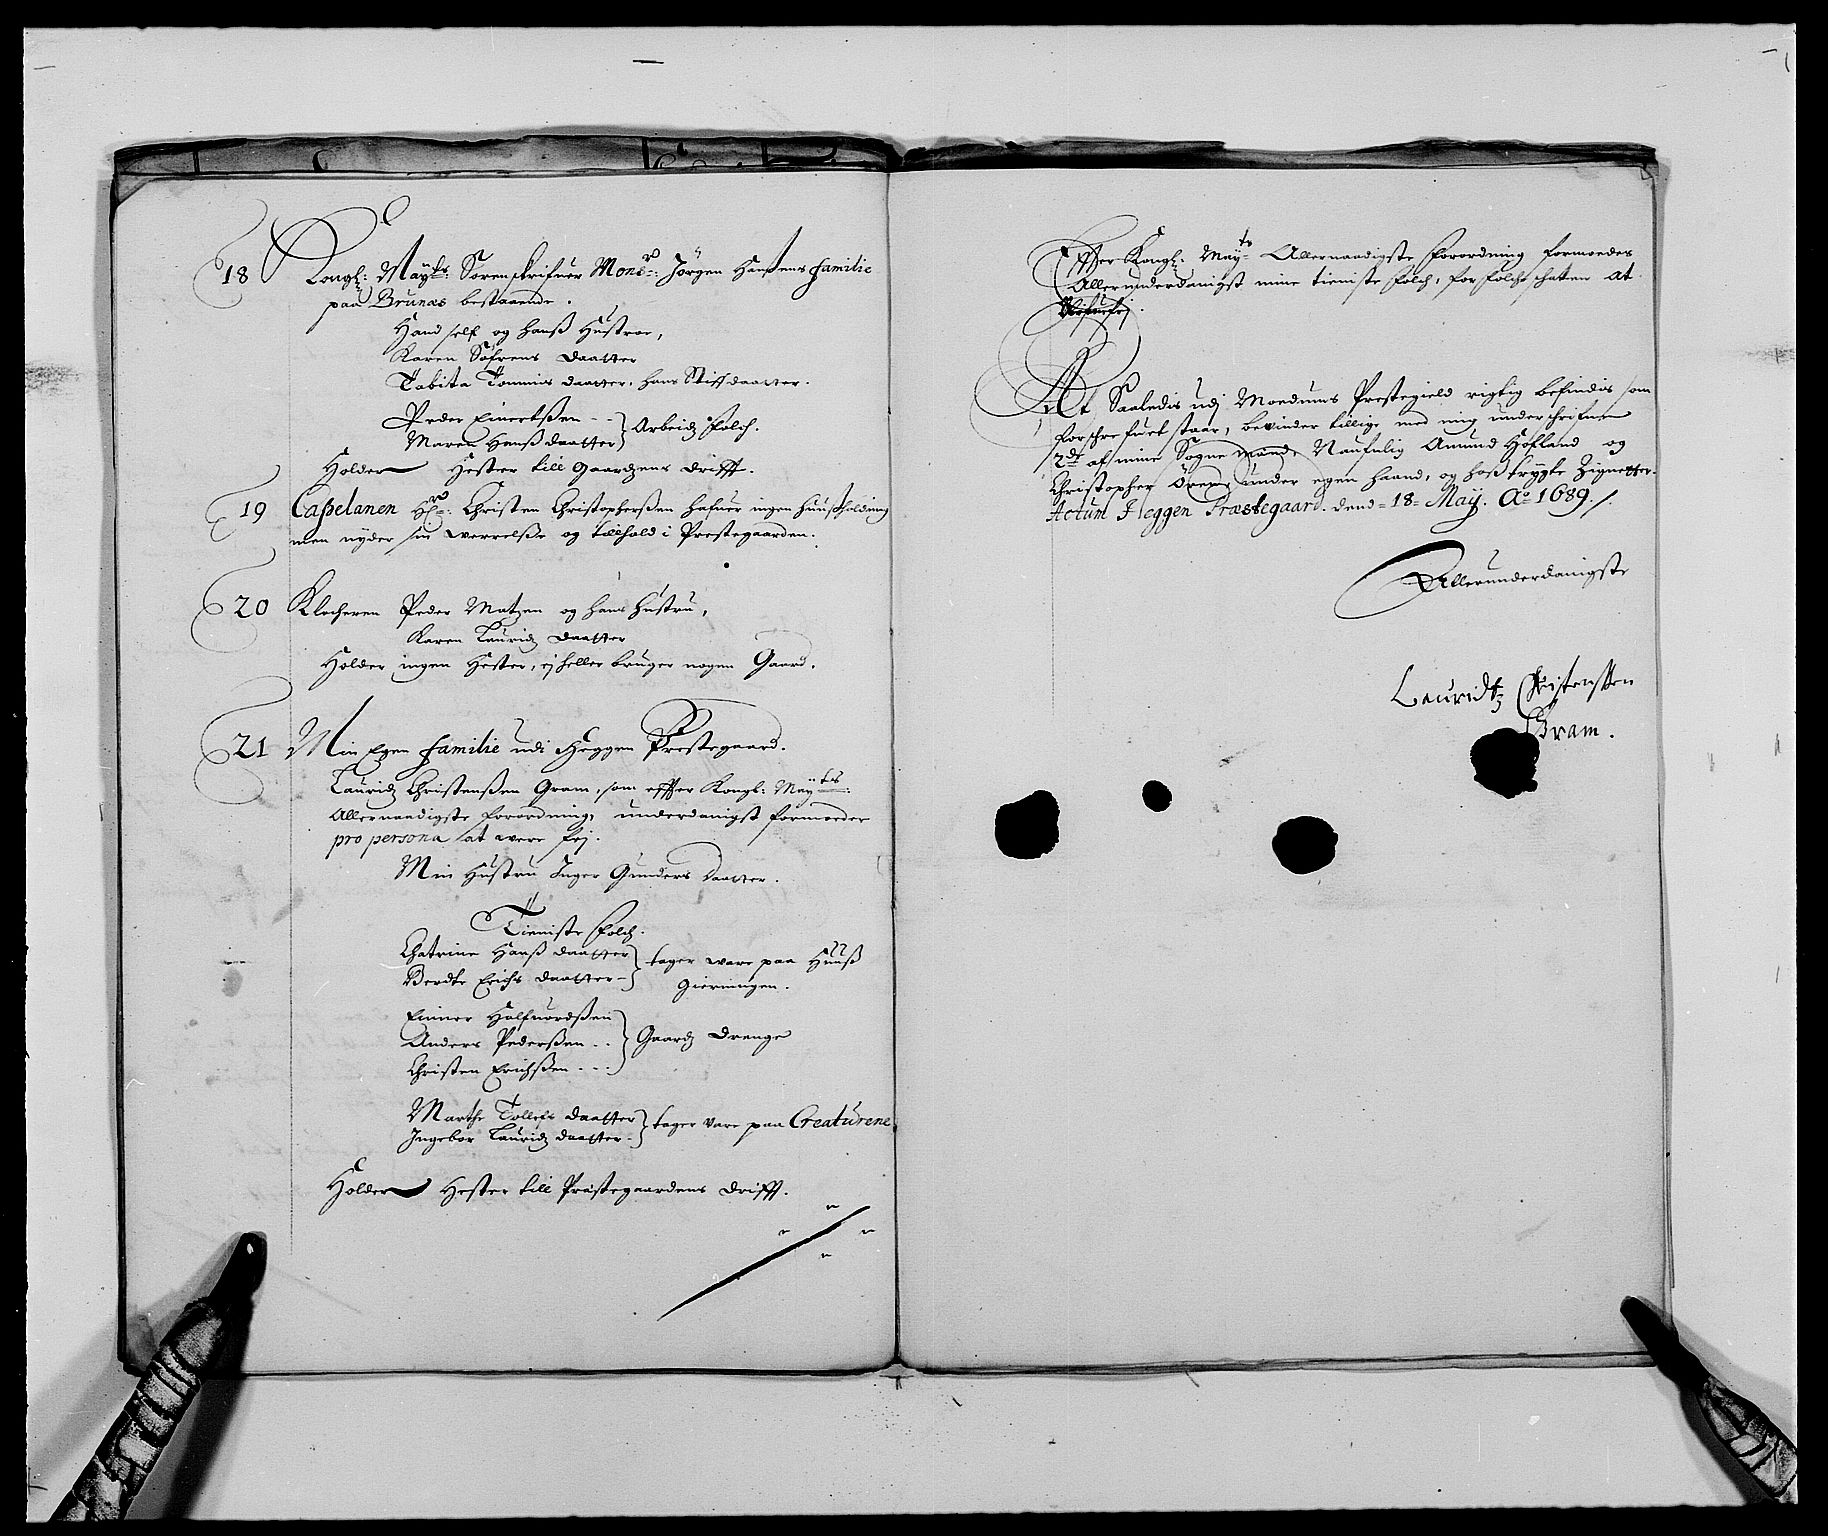 18 Kongl: Maytz: Sorenskrifuer Monsr: Jörgen Hansens familie
paa Brunæs bestaaende.
Hand self og hanß Hustroe,
Karen Söfrens daatter
Tabita Tommis daatter, hans Stifdaatter.
Peder Einertßen - - } Arbeidz Folch.
Maren Hanß daatter
Holder Hester till Gaardzens drifft.
19 Capelanen Hr: Christen Christopherßen hafuer ingen Huußholdning
men nyder sin werrelße og tilhold i Prestegaarden.
20 Klocheren Peder Matzen og hans Hustru,
Karen Lauridz daatter
Holder ingen Hester, ej heller bruger nogen Gaard.
21 Min Egen familie udi Heggen Prestegaard.
Lauridz Christenßen Gram, som effter Kongl: Maytes:
Allernaadigste forordning, underdanigst formoeder
pro persona at were frj.
Min Hustru Inger Gunders daatter.
Tieniste Folch.
Chatrine Hanß daatter } tager ware paa Huuß
Berdte Erichs daatter - gierningen.
Einner Halfuordßen
Anders Pederßen - - } Gaardz drenge
Christen Erichßen - - -
Marthe Tollefs daatter } tager vare paa Creaturene
Ingebor Lauridz daatter -
Holder Hester till Præstegaardens drifft.
Effter Kongl: Mayts Allernaadigste Forordning formoedes
Allerunderdanigst mine tieniste Folch, for Folcheschatten at
At Saaledis udj Moedums Prestegield rigtig befindis som
forschrefuet staar, bevinder tillige med mig underschrifne
2de af mine Sogne mænd, Naufnlig Amund Hofland og
Christopher Ören, under egen haand, og hoß trygte Zignetter.
Actum Heggen Præstegaard. dend = 18 = May. Ao 1689 /
Allerunderdanigste
Lauridtz Christensen
Gram.